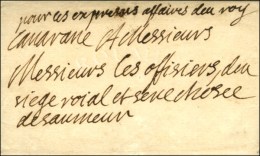 pour les expresses affaires du roy
A Messieurs
Messieurs les offisiers du
siege roial et senechosee
desaumeur